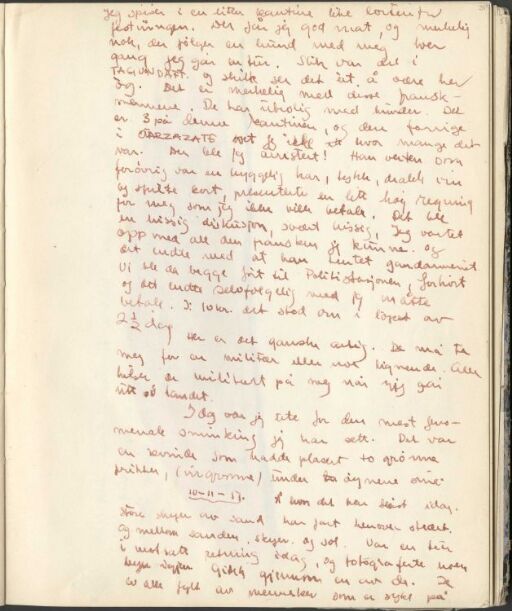 Jeg spiser i en liten kantine like bortenfor
festningen. Der får jeg god mat, og merkelig
nok, der følger en hund med meg hver
gang jeg går en tur. Slik var det i
TAGUNDAFT. og slik ser det ut å være her
óg. Det er merkelig med disse fransk-
mennene. De har utrolig med hunder. Det
er 3 på denne kantinen, og den forrige
i OARZAZATE vet jeg ikke hvor mange det
var. Der ble jeg arrestert! Han verten som
forøvrig var en hyggelig kar, drakk vin
og spilte kort, presenterte en litt høy regning
for meg som jeg ikke ville betale. Det ble
en hissig diskusjon, svært hissig, Jeg vartet
opp med all den fransken jeg kunne. og
det endte med at han hentet gendarmeriet
Vi ble da begge ført til Politistasjonen, forhørt
og det endte selvfølgelig med jeg måtte
betale. I: 10 kr. det stod om i løpet av
2 1/2 dag
Her er det ganske artig. De må ta
meg for en militær eller noe lignende. Alle
hilser de militært på meg når jeg går
ute på landet.
Idag var jeg ute for den mest feno-
menale sminking jeg har sett. Det var
en kvinde som hadde plasert to grønne
prikker, (irrgrønne) under øynene
10-11-51.
som det har blåst idag.
store skyer av sand har jaget henover stedet.
og mellom sanden, skyer og sol. Var en tur
i motsatt retning idag, og fotograferte noen
Gikk gjennom en av de. De
er alle fylt av mennesker som er syke på